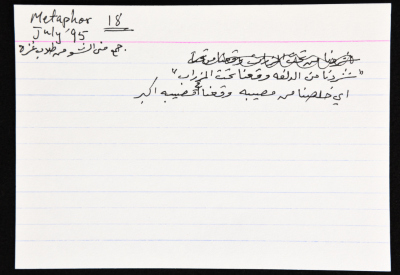 Metaphor 18
July '95
جمع منى الشو من طلاب غزة
"شردنا من الدلفه وقعنا تحت المزراب"
اي خلصنا من مصيبه وقعنا بمصيبه اكبر